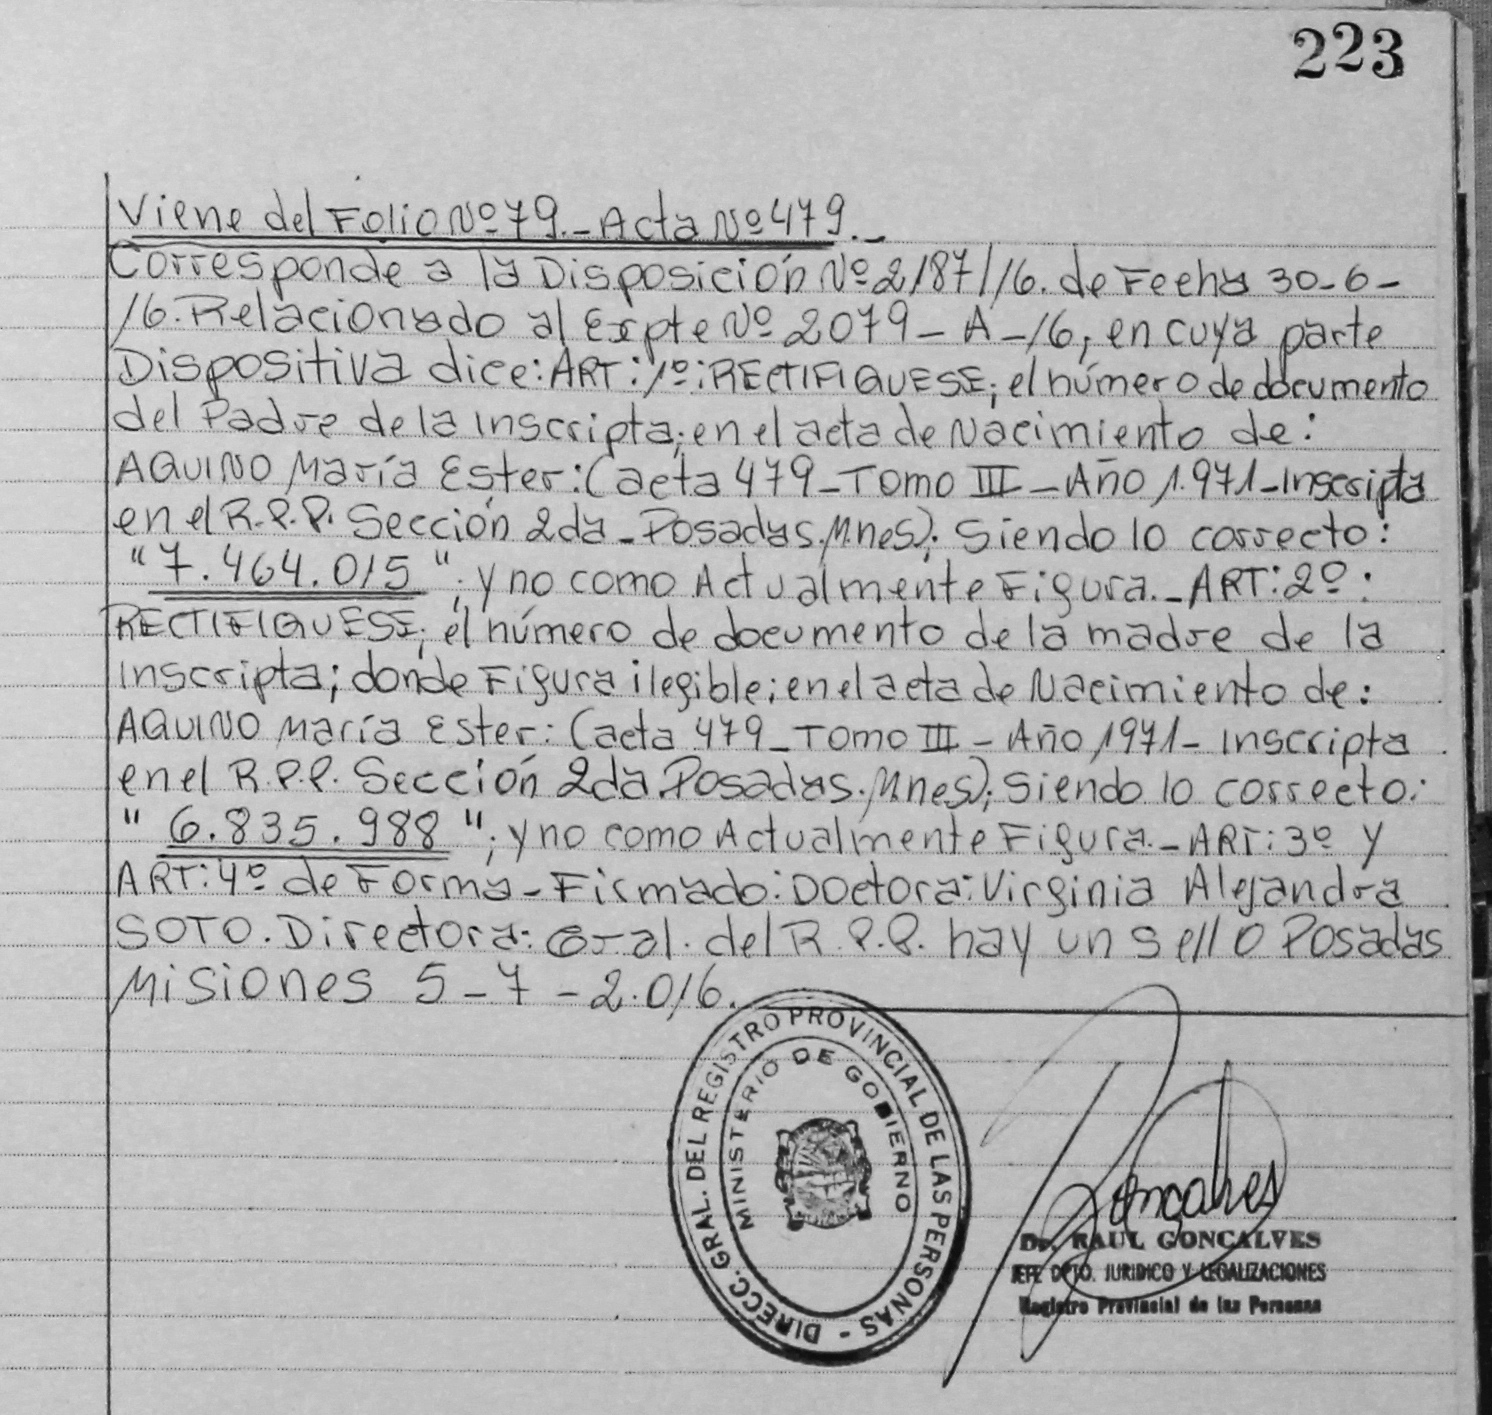 223
Viene del Folio Nº 79.- Acta Nº 479.-
Corresponde a la Disposición Nº 2187/16. de Fecha 30-6-
16. Relacionado al Expte Nº 2079-A-16, en cuya parte
Dispositiva dice: ART: 1º: RECTIFIQUESE; el número de documento
del Padre de la inscripta; en el acta de Nacimiento de:
AQUINO María Ester: (acta 479-Tomo III-Año 1.971-Inscripta
en el R.P.P. Sección 2da-Posadas. Mnes); Siendo lo correcto:
"7.464.015"; y no como Actualmente Figura.-ART: 2º:
RECTIFIQUESE; el número de documento de la madre de la
Inscripta; donde Figura ilegible; en el acta de Nacimiento de:
AQUINO María Ester: (acta 479-Tomo III-Año 1971-Inscripta
en el R.P.P. Sección 2da. Posadas. Mnes); Siendo lo correcto:
"6.835.988"; y no como Actualmente Figura.-ART: 3º y
ART: 4º de Forma-Firmado: Doctora: Virginia Alejandra
SOTO. Directora: Gral. del R.P.P. hay un sello Posadas
Misiones 5-7-2.016.
DIRECC. GRAL. DEL REGISTRO PROVINCIAL DE LAS PERSONAS -
MINISTERIO DE GOBIERNO
Goncalves
Dr. RAUL GONCALVES
JEFE DPTO. JURIDICO Y LEGALIZACIONES
Registro Provincial de las Personas